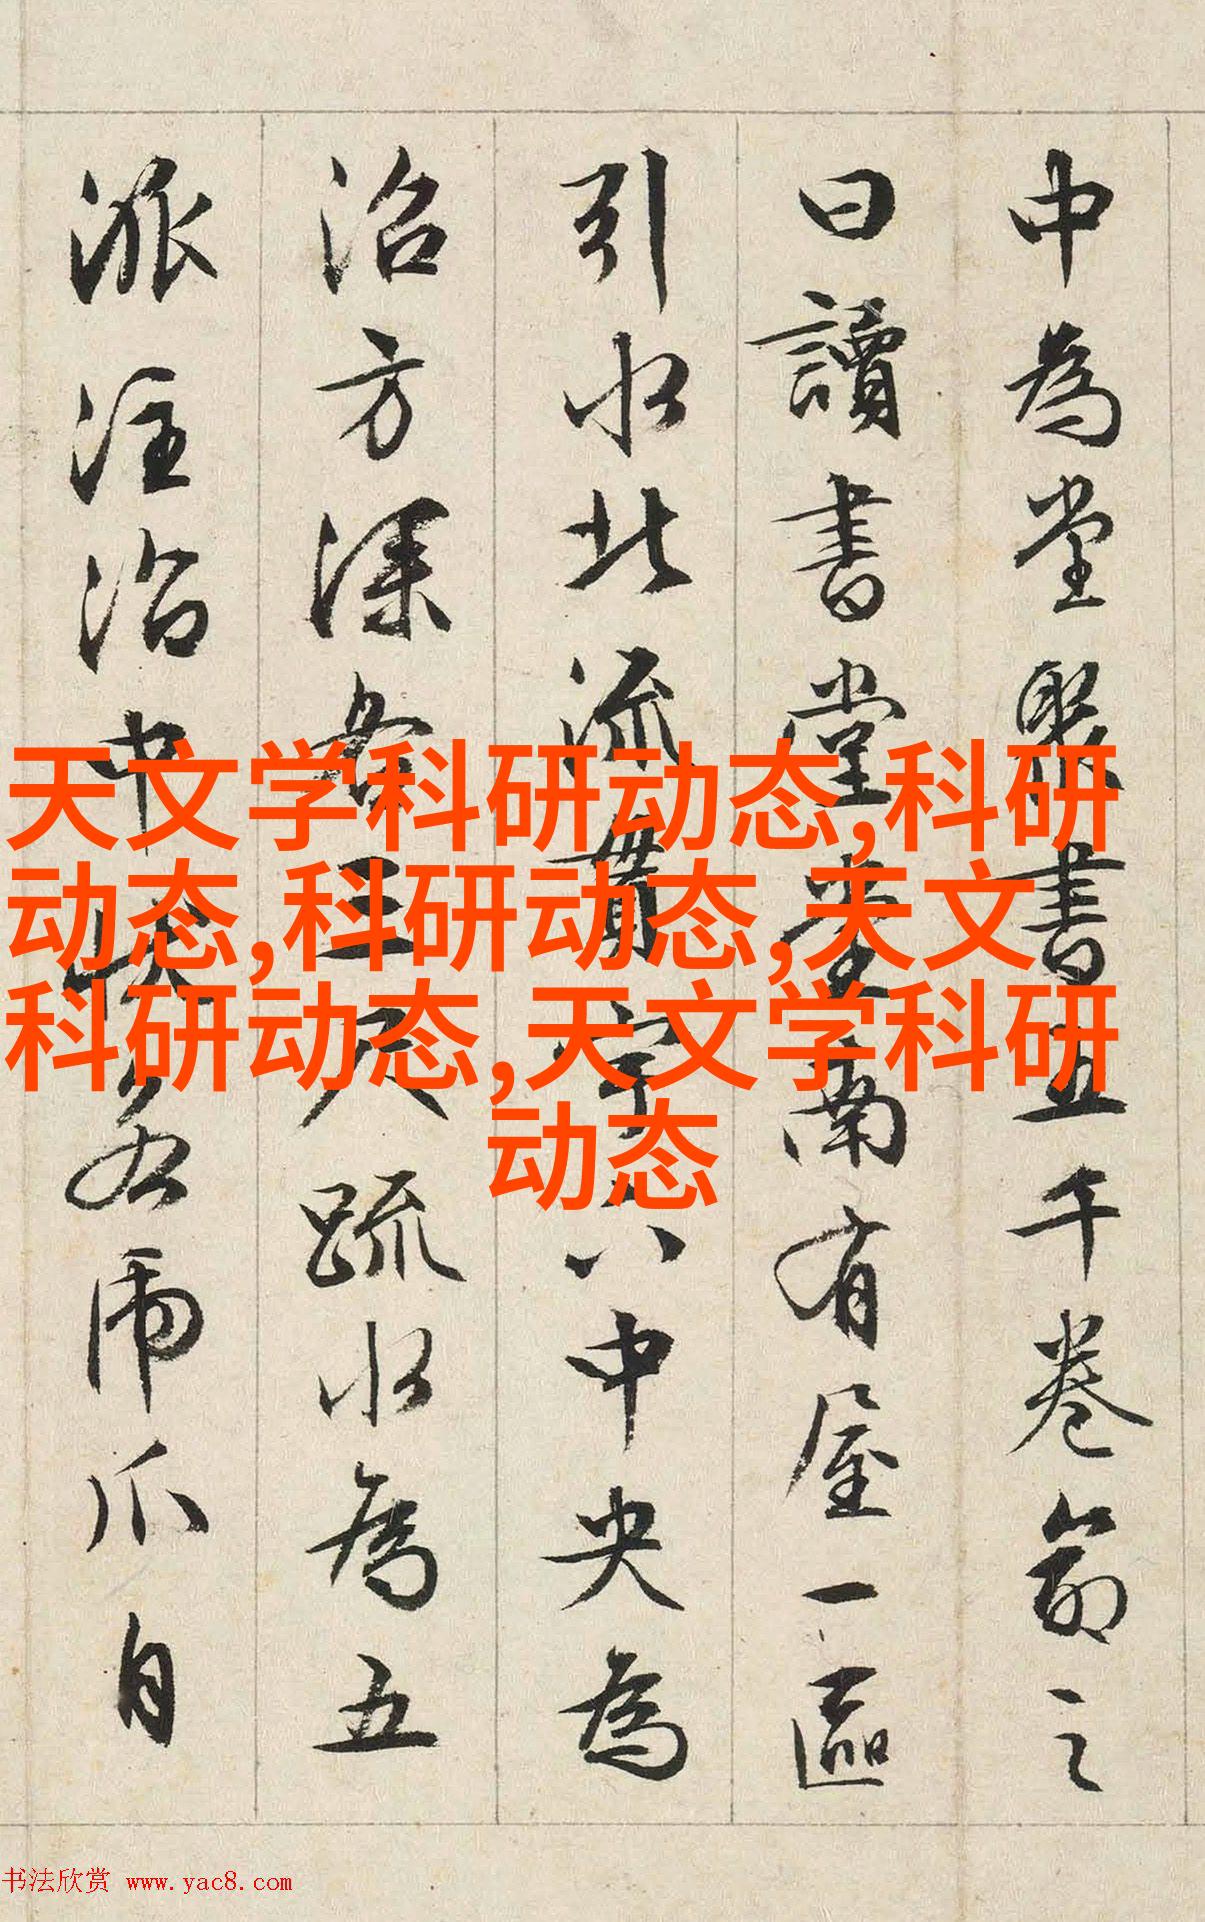 中為堂聚書五千卷命之
曰讀書堂堂南有屋一區
引水北流貫宇下中央為
沼方深各三尺疏水為五
派注沼中狀若虎爪自
天文学科研动态,科研
动态,科研动态,天文
科研动态,天文学科研
动态
书法欣赏 www.yac8.com